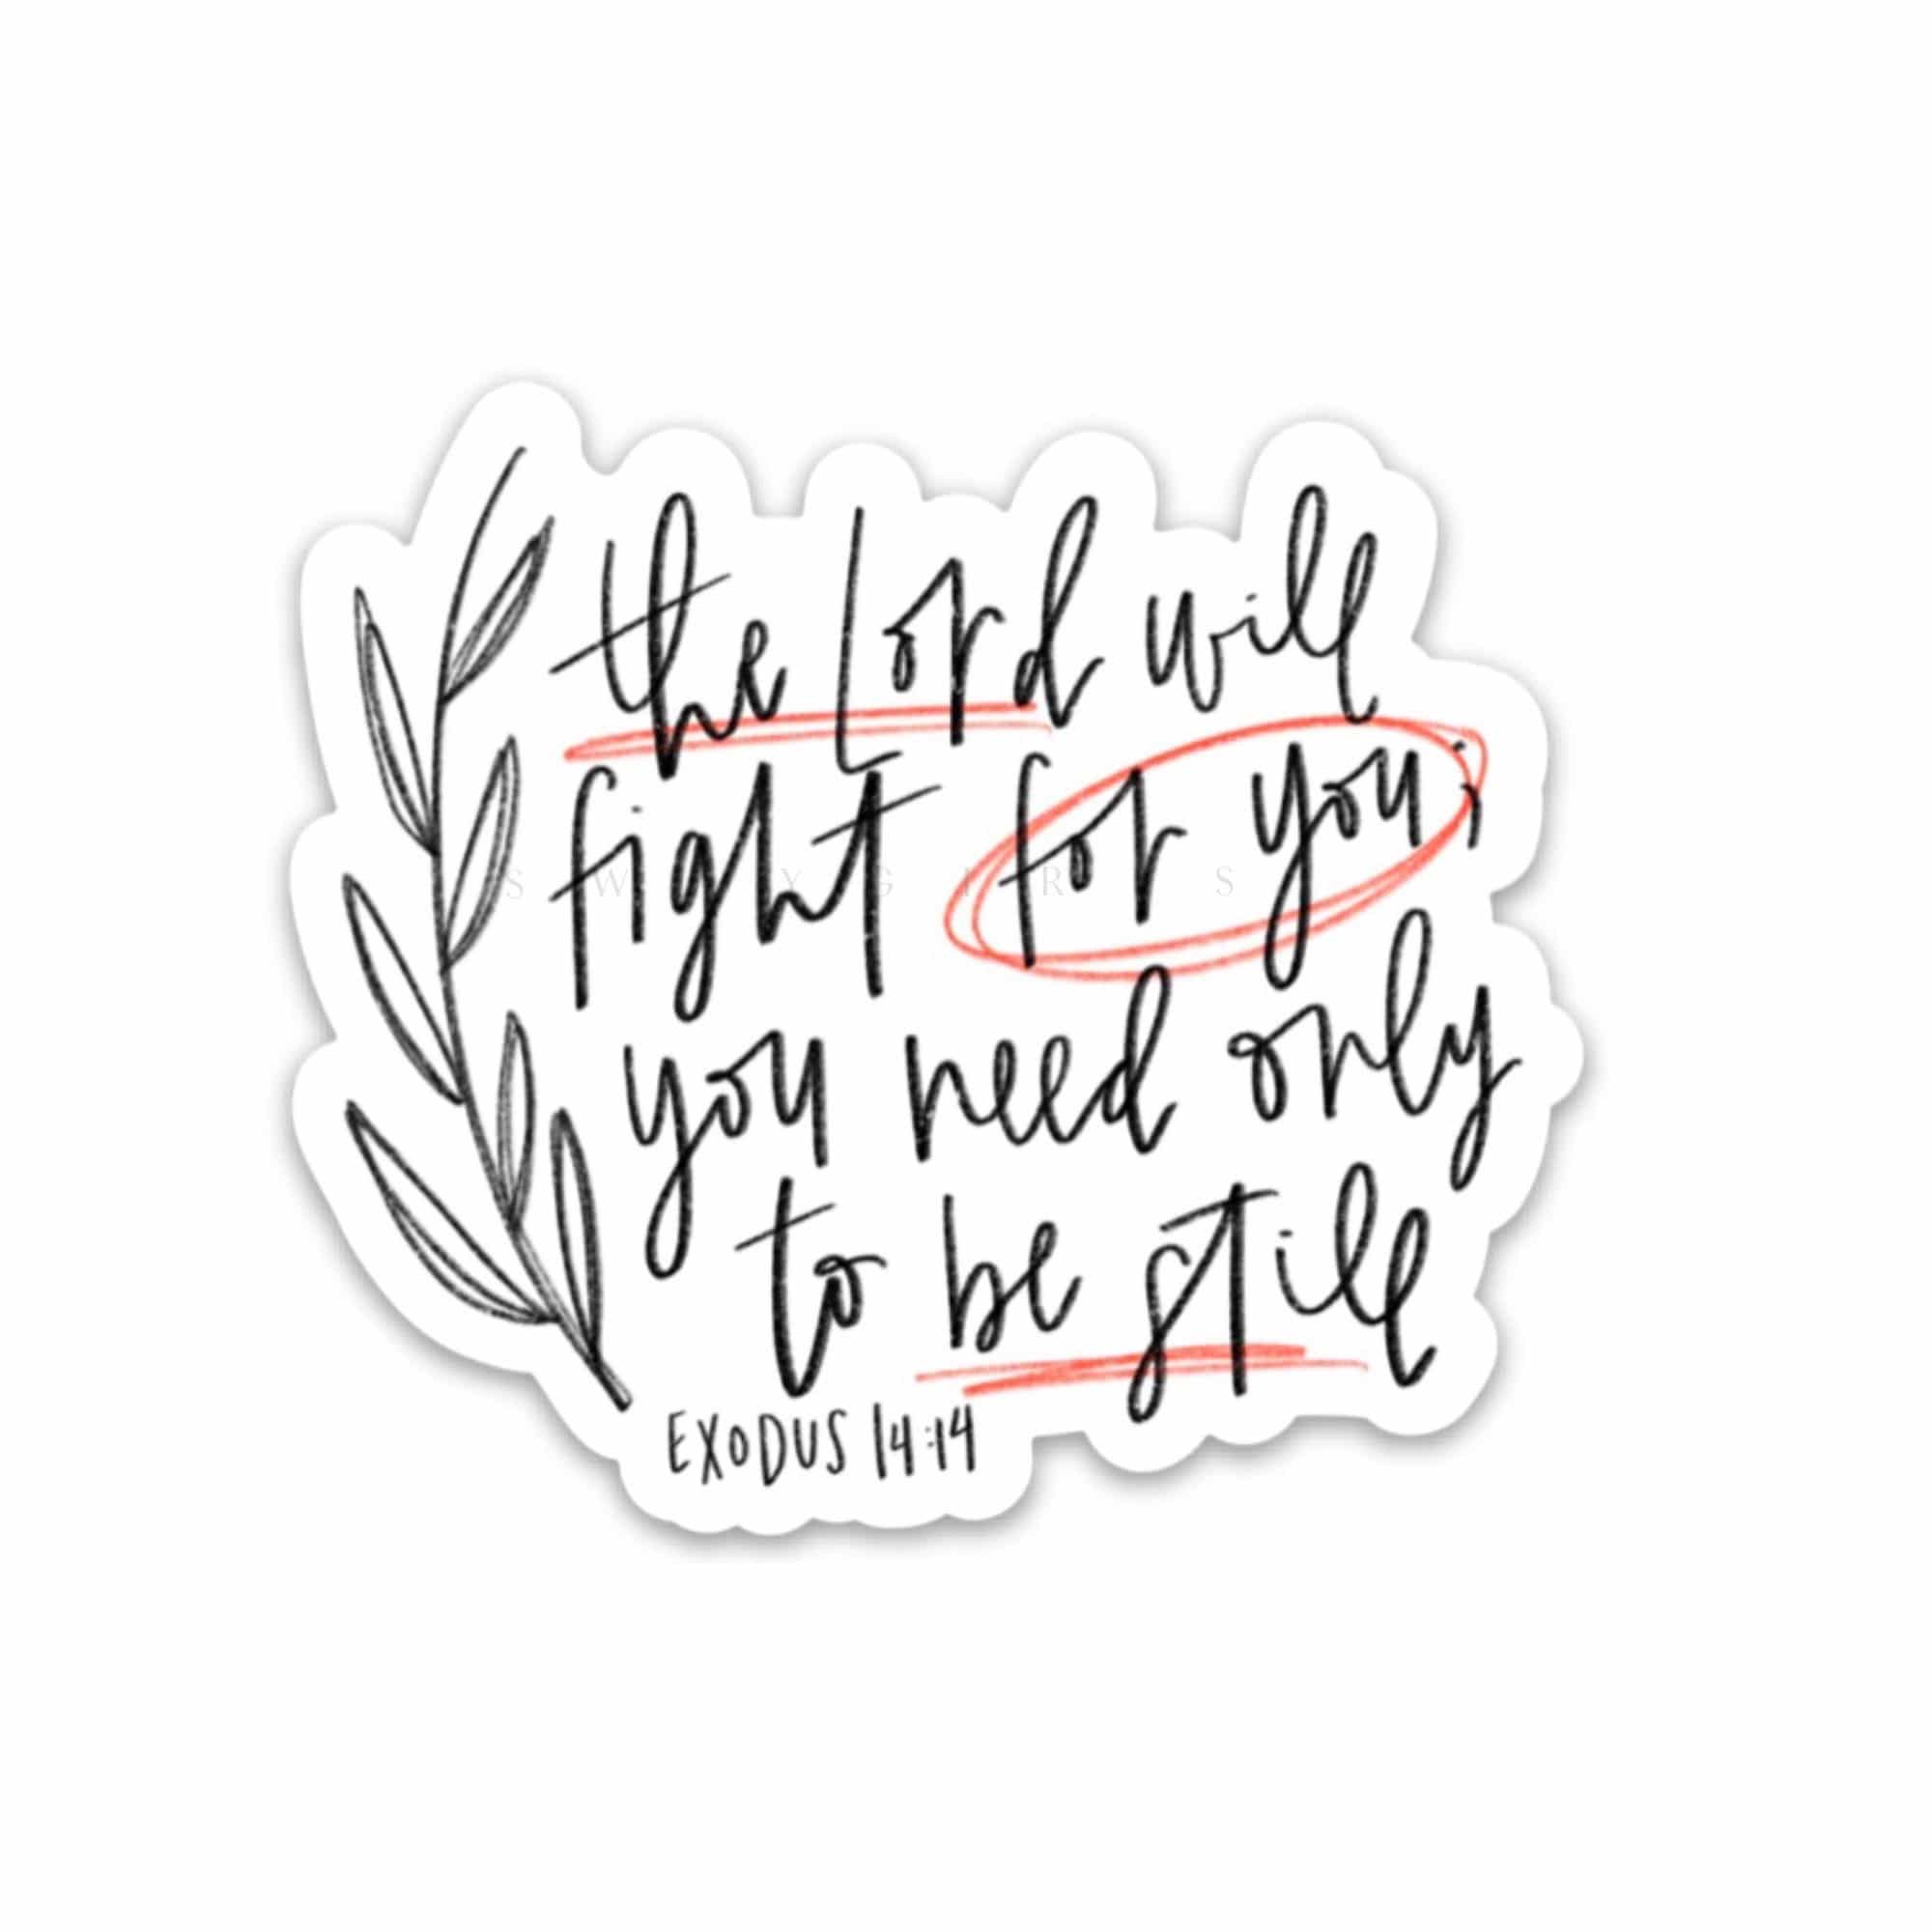 the Lord will
fight for you;
you need only
to be still
EXODUS 14:14